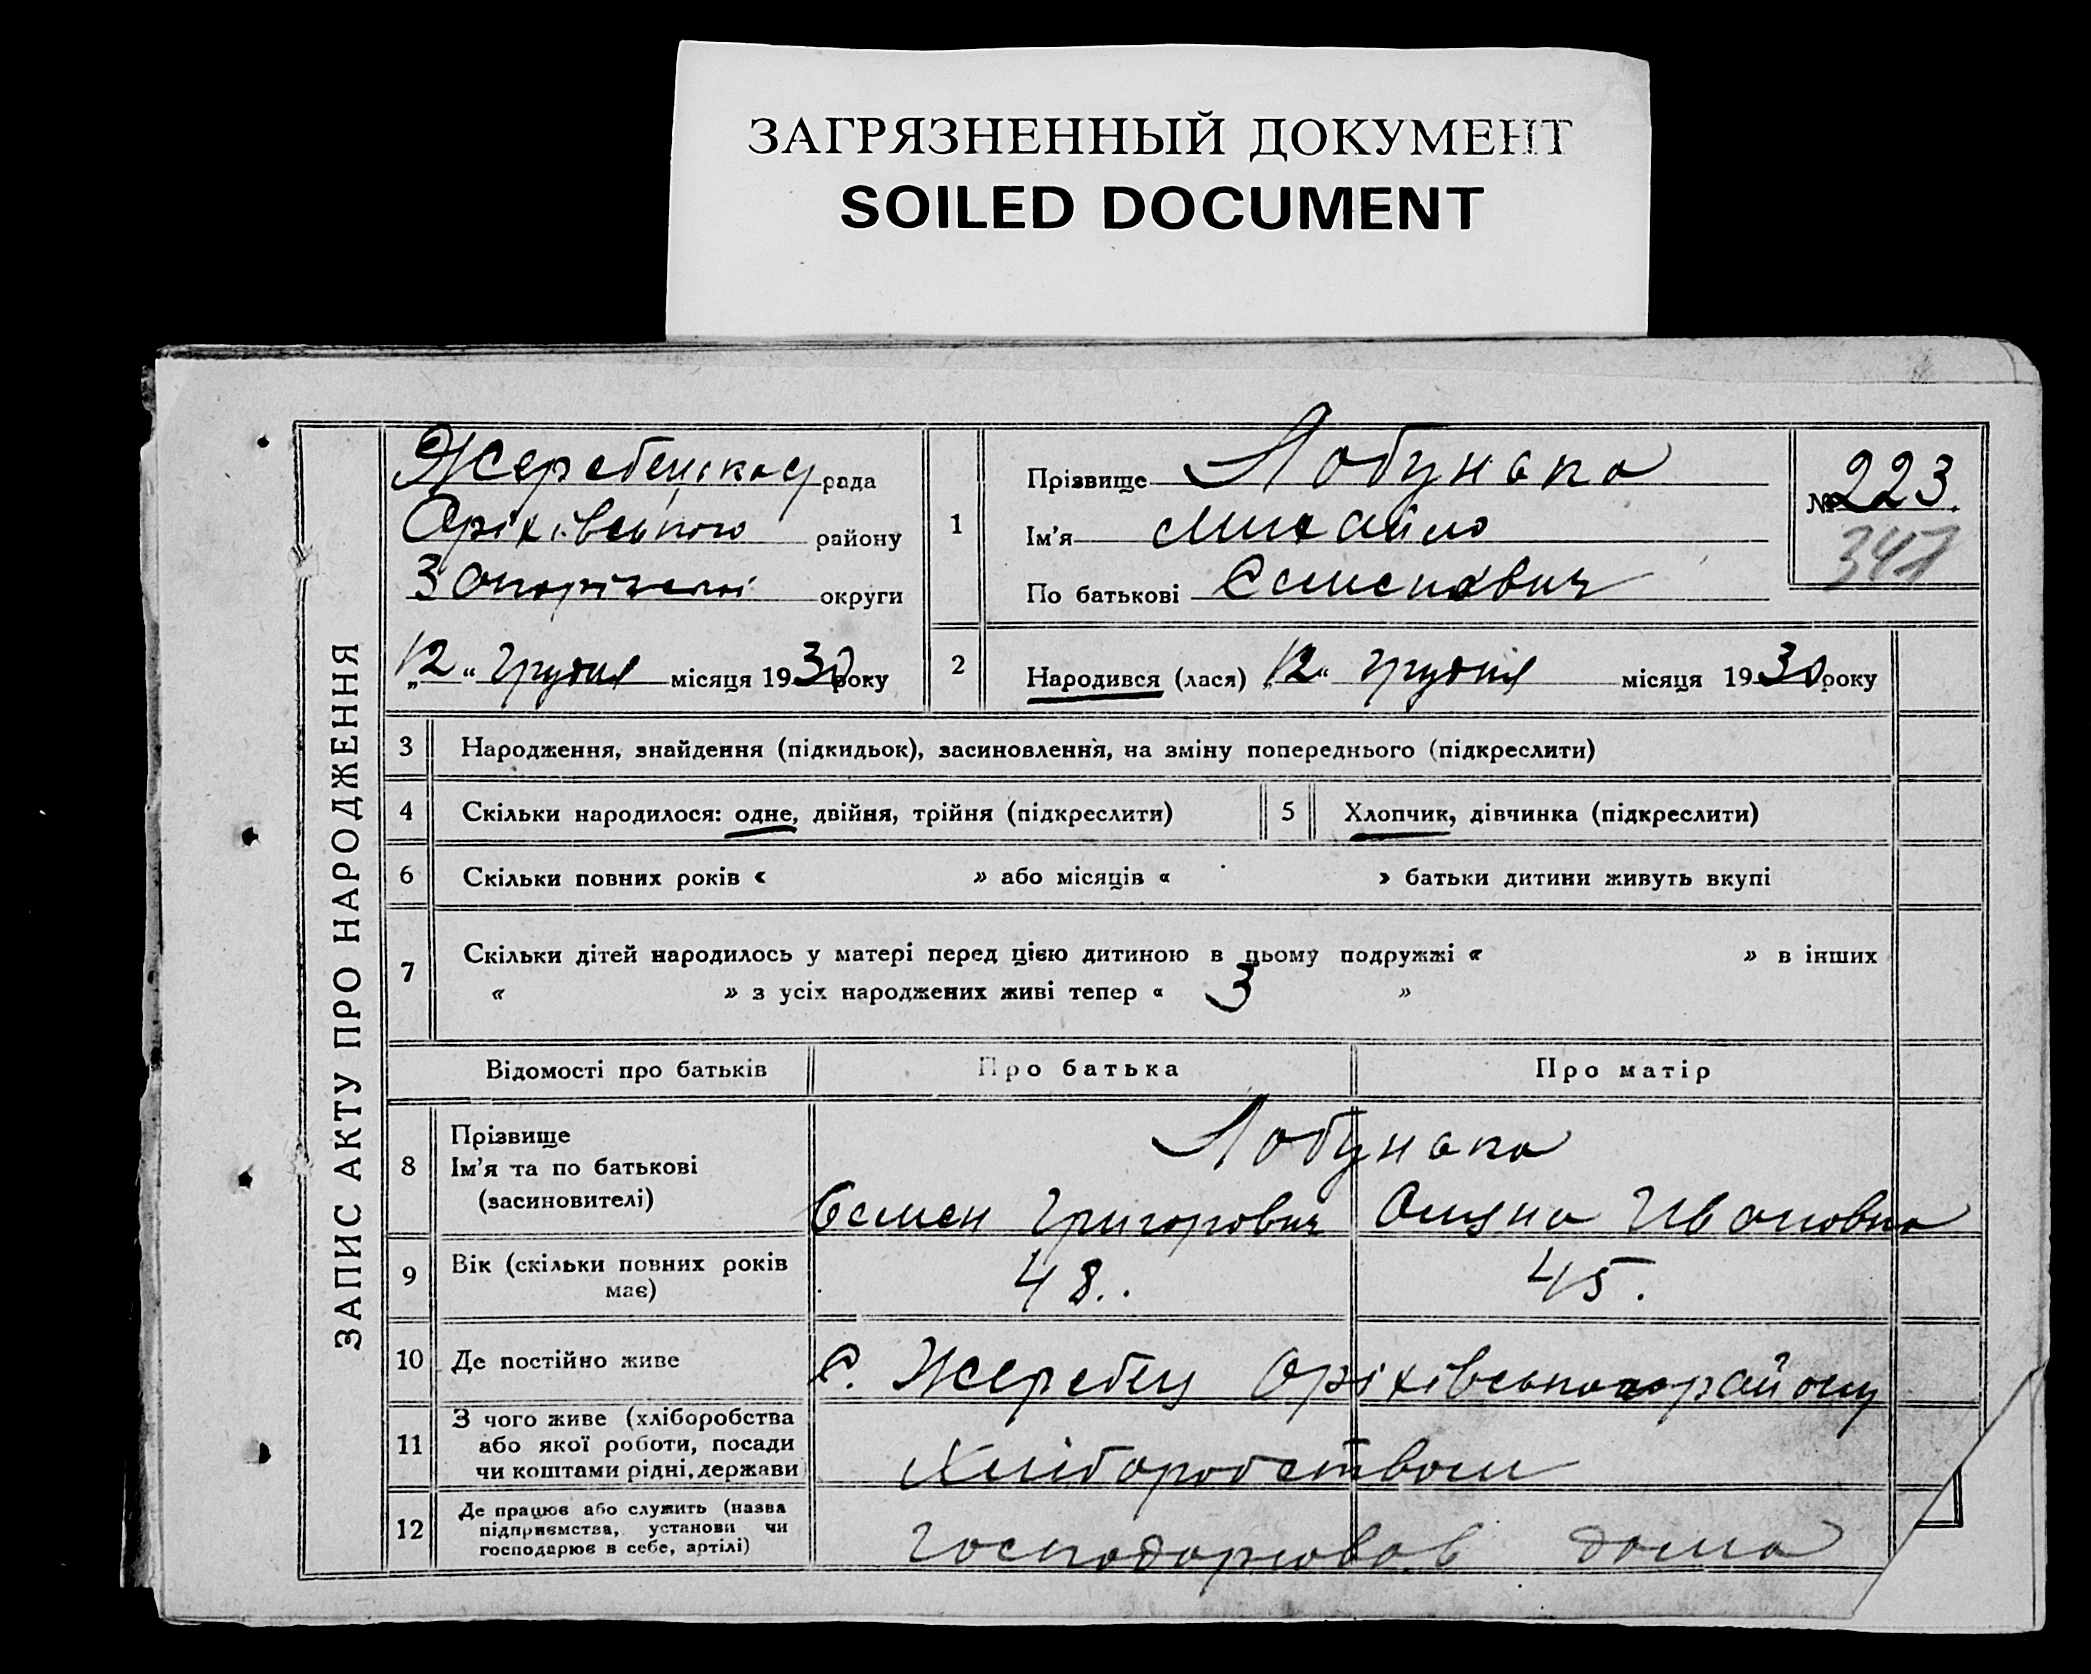 ЗАГРЯЗНЕННЫЙ ДОКУМЕНТ
SOILED DOCUMENT
ЗАПИС АКТУ ПРО НАРОДЖЕННЯ
Жеребецька рада
Оріхівського району
Запорізької округи
„12“ грудня місяця 1930 року
1
Прізвище Лобунько
Ім'я Михайло
По батькові Семенович
№ 223.
347
2
Народився (лася) „12“ грудня місяця 1930 року
3 Народження, знайдення (підкидьок), засиновлення, на зміну попереднього (підкреслити)
4 Скільки народилося: одне, двійня, трійня (підкреслити)
5 Хлопчик, дівчинка (підкреслити)
6 Скільки повних років « » або місяців « » батьки дитини живуть вкупі
7 Скільки дітей народилось у матері перед цією дитиною в цьому подружжі « » в інших
« » з усіх народжених живі тепер « 3 »
Відомості про батьків Про батька Про матір
8 Прізвище
Ім'я та по батькові
(засиновителі)
Лобунько
Семен Григорович
Ивановна
9 Вік (скільки повних років
має)
48..
45.
10 Де постійно живе
С. Жеребец Оріхівського району
11 З чого живе (хліборобства
або якої роботи, посади
чи коштами рідні, держави
Хліборобством
12 Де працює або служить (назва
підприємства, установи чи
господарює в себе, артілі)
Господарював дома